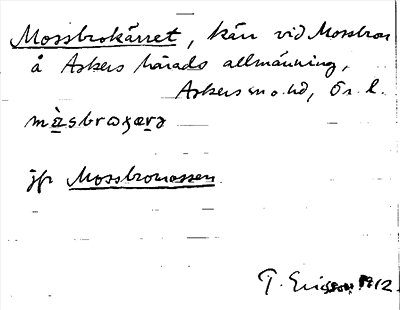 Mossbrokärret, kärr vid Mossbron
å Askers härads allmänning,
Askers sn o. hd, Ör. l.
mɑ̀sbroɷçærə
jfr Mossbromossen.
T. Ericsson 1912.